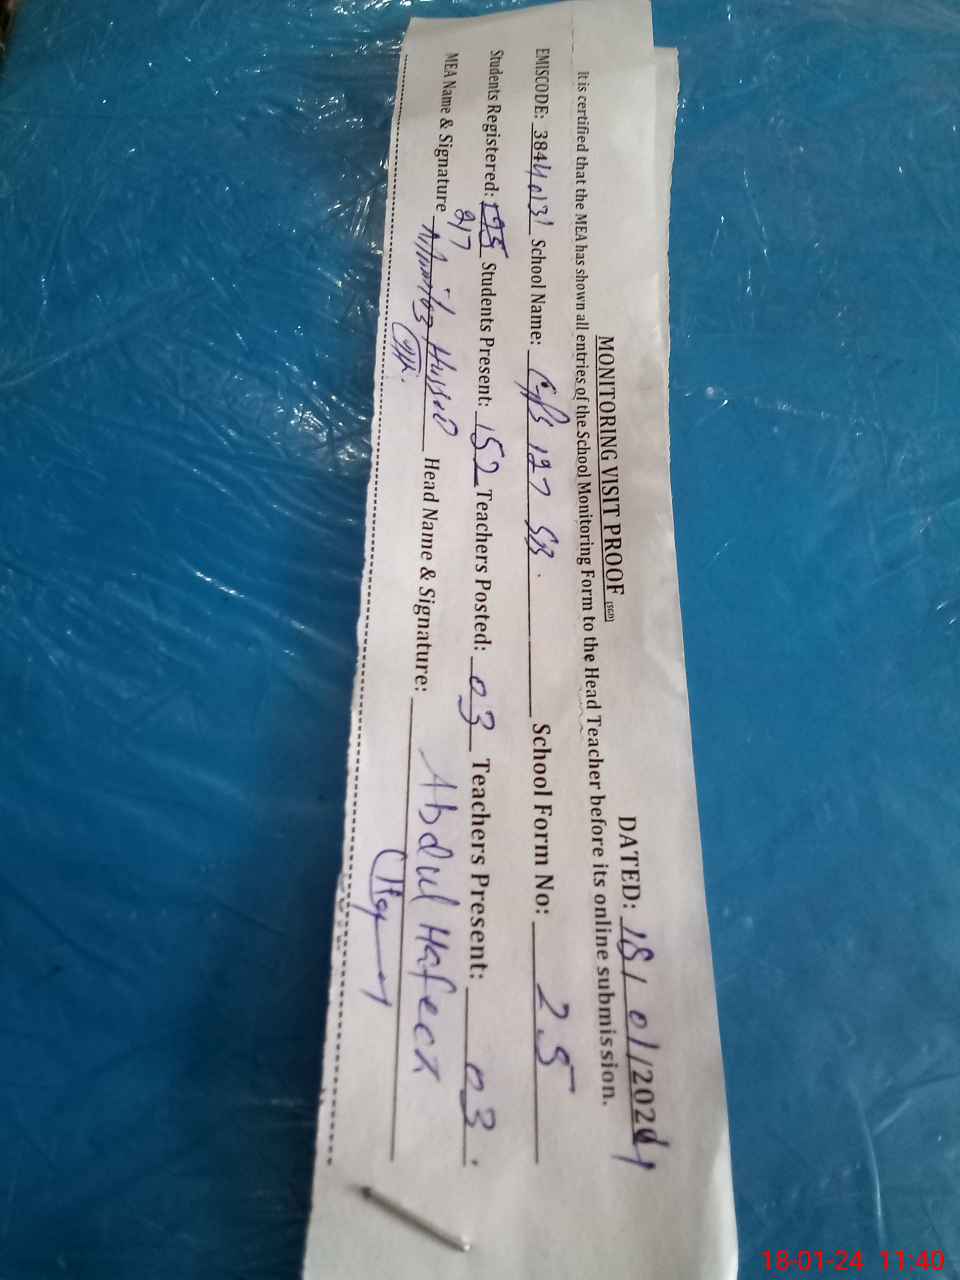 MONITORING VISIT PROOF (SGD)
DATED: 18/01/2024
It is certified that the MEA has shown all entries of the School Monitoring Form to the Head Teacher before its online submission.
EMISCODE: 38440131 School Name: 127 SB. School Form No: 25
Students Registered: 195 217 Students Present: 152 Teachers Posted: 03 Teachers Present: 03.
MEA Name & Signature Hussain Head Name & Signature: Abdul Hafeez
18-01-24 11:40